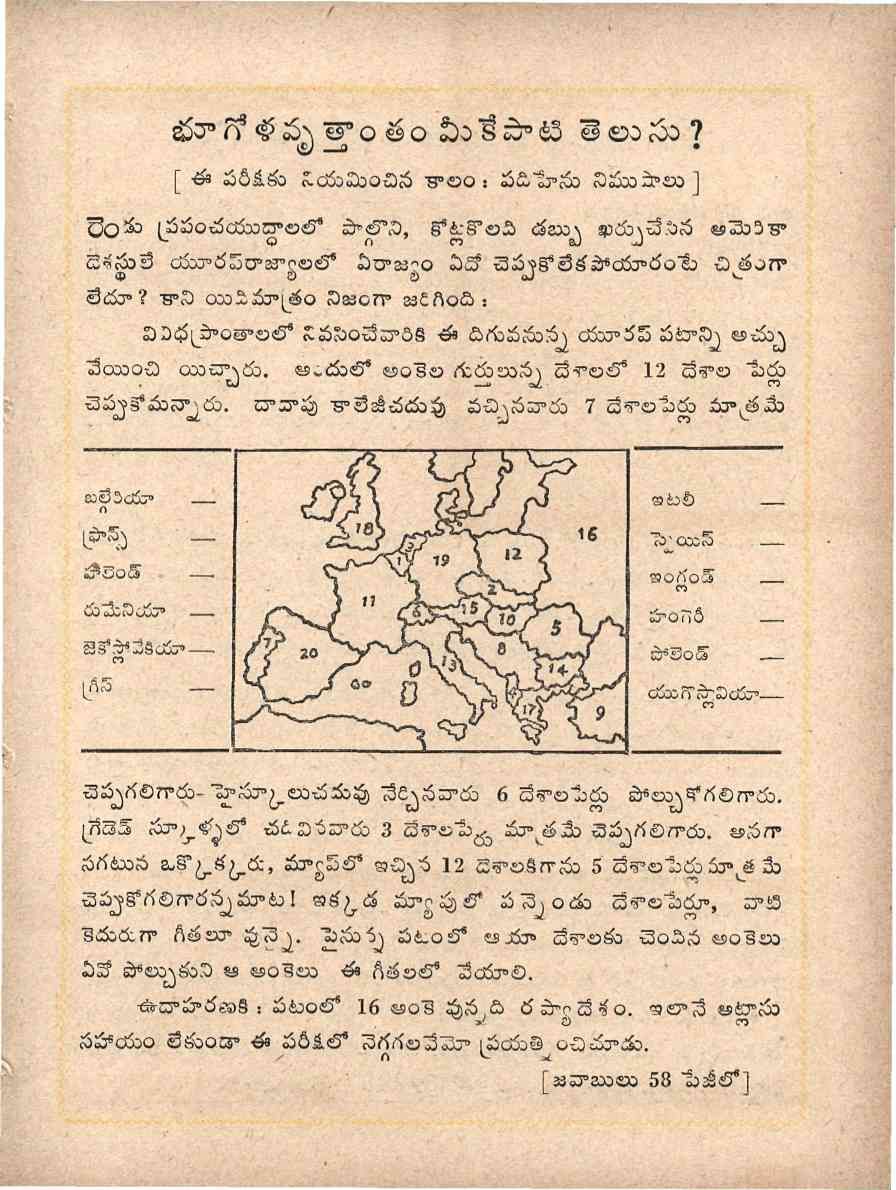 భూగోళవృత్తాంతం మీకేపాటి తెలుసు?
[ ఈ పరీక్షకు నియమించిన కాలం : పదిహేను నిముషాలు ]
రెండు ప్రపంచయుద్ధాలలో పాల్గొని, కోట్లకొలది డబ్బు ఖర్చుచేసిన అమెరికా
దేశస్థులే యూరప్‌రాజ్యాలలో ఏరాజ్యం ఏదో చెప్పుకోలేకపోయారంటే చిత్రంగా
లేదూ? కాని యిదిమాత్రం నిజంగా జరిగింది :
వివిధప్రాంతాలలో నివసించేవారికి ఈ దిగువనున్న యూరప్ పటాన్ని అచ్చు
వేయించి యిచ్చారు. అందులో అంకెల గుర్తులున్న దేశాలలో 12 దేశాల పేర్లు
చెప్పుకోమన్నారు. దాదాపు కాలేజీచదువు వచ్చినవారు 7 దేశాలపేర్లు మాత్రమే
బల్గేరియా —
ఫ్రాన్స్ —
హాలెండ్ —
రుమేనియా —
జెకోస్లోవేకియా —
గ్రీస్ —
18
16
3
1
19
12
2
11
6
15
10
5
7
20
13
8
14
4
17
9
ఇటలీ —
స్పెయిన్ —
ఇంగ్లండ్ —
హంగెరీ —
పోలెండ్ —
యుగోస్లావియా —
చెప్పగలిగారు- హైస్కూలుచదువు నేర్చినవారు 6 దేశాలపేర్లు పోల్చుకోగలిగారు.
గ్రేడెడ్ స్కూళ్ళలో చదివినవారు 3 దేశాలపేర్లు మాత్రమే చెప్పగలిగారు. అనగా
సగటున ఒక్కొక్కరు, మ్యాప్‌లో ఇచ్చిన 12 దేశాలకిగాను 5 దేశాలపేర్లుమాత్రమే
చెప్పుకోగలిగారన్నమాట! ఇక్కడ మ్యాపులో పన్నెండు దేశాలపేర్లూ, వాటి
కెదురుగా గీతలూ వున్నై. పైనున్న పటంలో ఆయా దేశాలకు చెందిన అంకెలు
ఏవో పోల్చుకుని ఆ అంకెలు ఈ గీతలలో వేయాలి.
ఉదాహరణకి : పటంలో 16 అంకె వున్నది రష్యాదేశం. ఇలానే అట్లాసు
సహాయం లేకుండా ఈ పరీక్షలో నెగ్గగలవేమో ప్రయత్నించిచూడు.
[జవాబులు 58 పేజీలో]